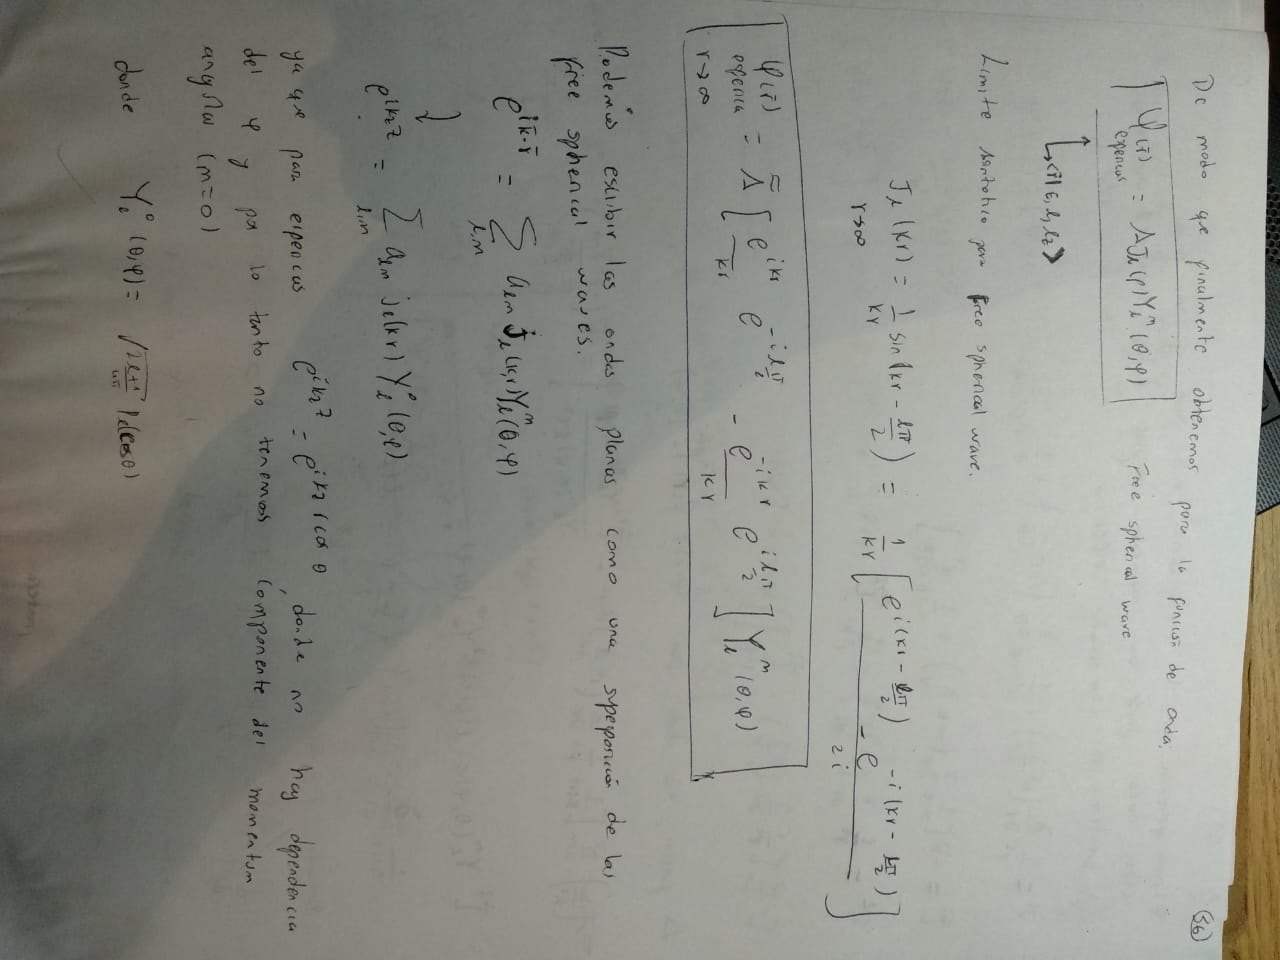 (56)
De modo que finalmente obtenemos para la función de onda.
φ(r̄) = A J_l(ρ) Y_l^m(θ,φ) Free spherical wave
esfericas
↳ <r̄|E,l,l_z>
Limite asintotico para free spherical wave.
J_l(kr) = 1/kr sin(kr - lπ/2) = 1/kr [ (e^{i(kr - lπ/2)} - e^{-i(kr - lπ/2)}) / 2i ]
r→∞
φ(r̄) = Ã [ e^{ikr}/kr e^{-ilπ/2} - e^{-ikr}/kr e^{ilπ/2} ] Y_l^m(θ,φ)
esferica
r→∞
Podemos escribir las ondas planas como una superposición de las
free spherical waves.
e^{ik̄·r̄} = Σ_{l,m} a_{lm} j_l(kr) Y_l^m(θ,φ)
↓
e^{ik_z z} = Σ_{l,m} a_{lm} j_l(kr) Y_l^0(θ,φ)
ya que para esfericas e^{ik_z z} = e^{ik_z r cos θ}, donde no hay dependencia
del φ y por lo tanto no tenemos componente del momentum
angular (m=0)
donde Y_l^0(θ,φ) = √(2l+1/4π) P_l(cosθ)